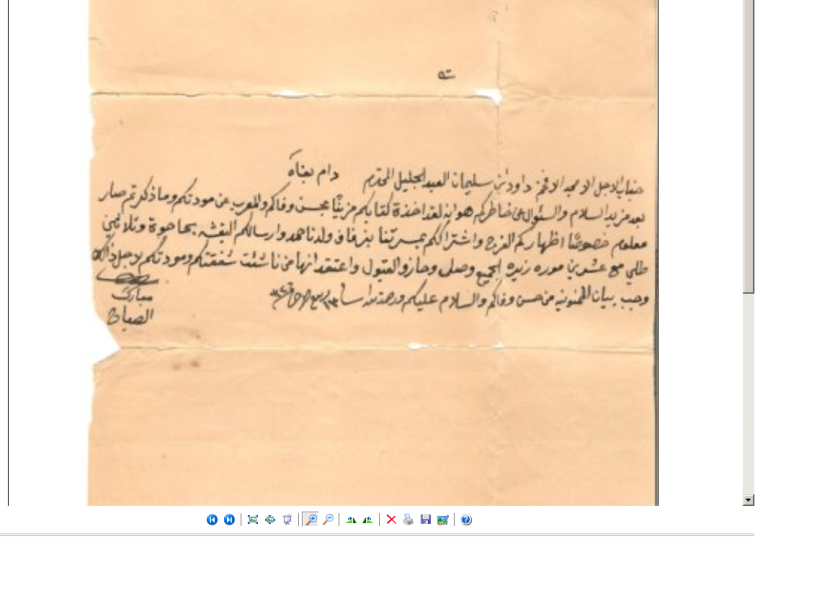 جناب الاجل الامجد الافخم داود بن سليمان العبد الجليل المحترم دام بقاه
بعد مزيد السلام والسئوال عن خاطركم هو انه لقد اخذنا كتابكم مزينًا بحسن وفاكم والمعرب عن مودتكم وما ذكرتم صار
معلوم خصوصًا اظهاركم الفرح واشتراككم بمسرتنا بزفاف ولدنا حمد وارسالكم البقشه بها جوة وثلاثين
طلي مع عشرين موره زبده الجميع وصل وحاز والقبول واعتقد انها من ناشئت شفقتكم ومودتكم لاجل ذالك
وجب بيان الممنونيه من حسن وفاكم والسلام عليكم ورحمة الله
مبارك
الصباح